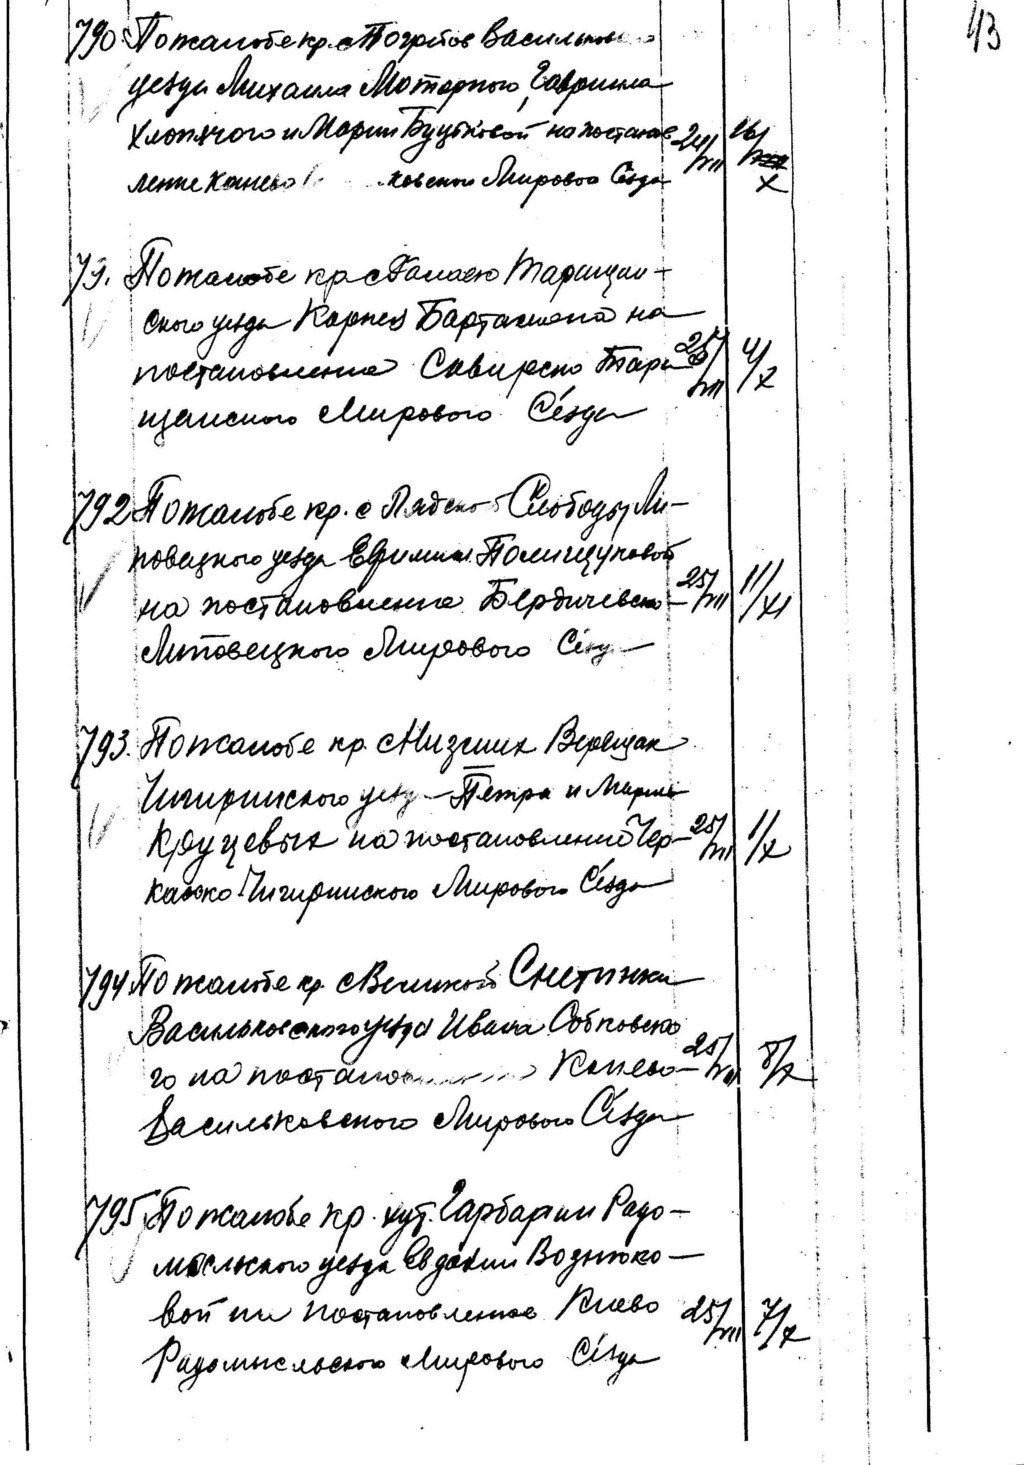 43
790 По жалобе кр. с Погребов Василько
уезда Михаила Моторного, Гавриила
Хлопячого и Марии Буцыковой на постанов- 24/VII 26/X
ление Канево ховского Мирового Съезда
79. По жалобе кр с Таращан-
ского уезда Карпа на
постановление Сквирско Тара 25/VII 4/X
щанского Мирового Съезда
792 По жалобе кр. с Лядской Слободы Ли-
повецкого уезда Ефимии Полищуковой
на постановление Бердичевско- 25/VII 11/XI
Липовецкого Мирового Съезда
793. По жалобе кр. с Низших Верещак
Чигиринского уезда Петра и Марии
Круцевых на постановление Чер- 25/VII 1/X
касско-Чигиринского Мирового Съезда
794 По жалобе кр. с Великой Снетинки
Васильковского уезда Ивана Собковско
го на постанов Канево- 25/VII 8/X
Васильковского Мирового Съезда
795 По жалобе кр. хут. Гарбарии Радо-
мысльского уезда Евдокии Вознюко-
вой на постановление Киево 25/VII 7/X
Радомысльского Мирового Съезда